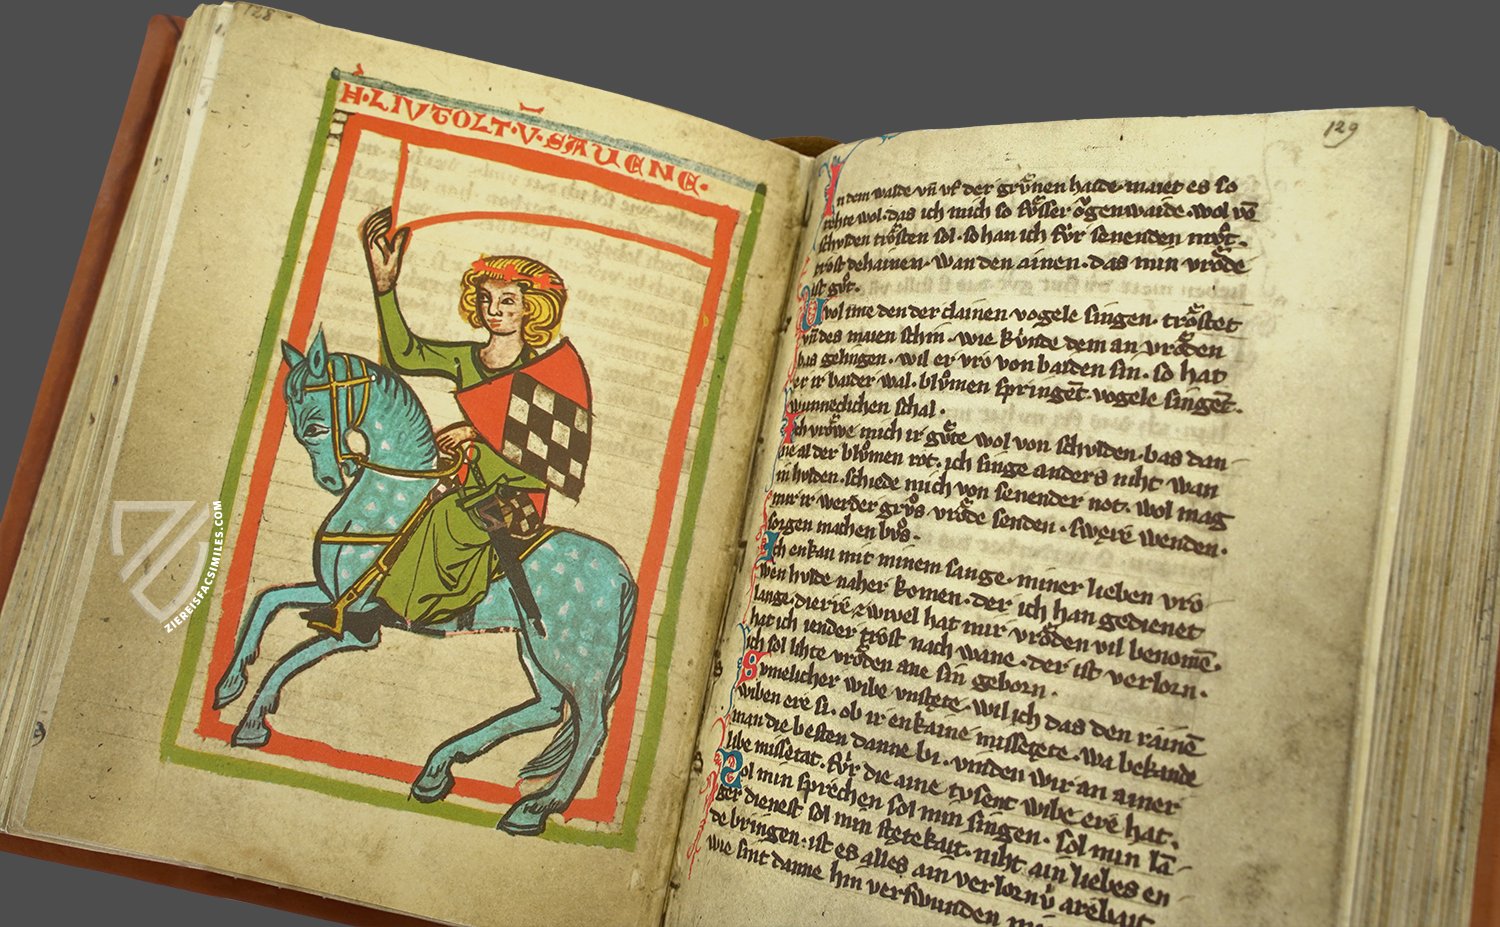 128
H·LIVTOLT·V̄·SAVENE·
ZIEREISFACSIMILES.COM
129
In dem walde vn̄ vf der grůnen haide maiet es so
rehte wol·das ich mich so sůsser ǒgenwaide·wol vō
schvlden trǒsten sol·so han ich fv́r senenden mǒt·
trost dehainen·wan den ainen·das min vrǒde
ist gůt·
Vvol ime den der clainen·vogele singen·trǒstet
vn̄ des maien schin·wie kv́nde dem an vrǒden
bas gelingen·wil er vro von baiden sin·so hat
er ir baider wal·blůmen springēt·vogele singēt·
wunneclichen schal·
Ich vrǒwe mich ir gůte wol von schvlden·bas dan
ne al der blůmen rot·ich singe anders niht wan
in hvlden·schiede mich von senender not·wol mag
mir ir werder grůs·vrǒde senden·swere wenden·
sorgen machen bůs·
Ich enkan mit minem sange·miner lieben vro
wen hvlde naher komen·der ich han gedienet
lange·die rie zwivel hat mir vrǒden vil benomē·
hat ich iender trost nach wane·der ist verlorn·
ich sol lihte vrǒden ane sin geborn·
Svmelicher wibe vnstete·wil ich das den rainē
wiben ere si·ob ir enkaine missetete·wa bekande
man die besten danne bi·vinden wir an ainer
libe missetat·fv́r die aine tvsent wibe ere hat·
Sol min sprechen sol min singen·sol min lā-
ger dienest sol min stetekait·niht ain liebes en
de bringen·ist es alles ain verlornv́ arebait
wie sint danne hin verswunden